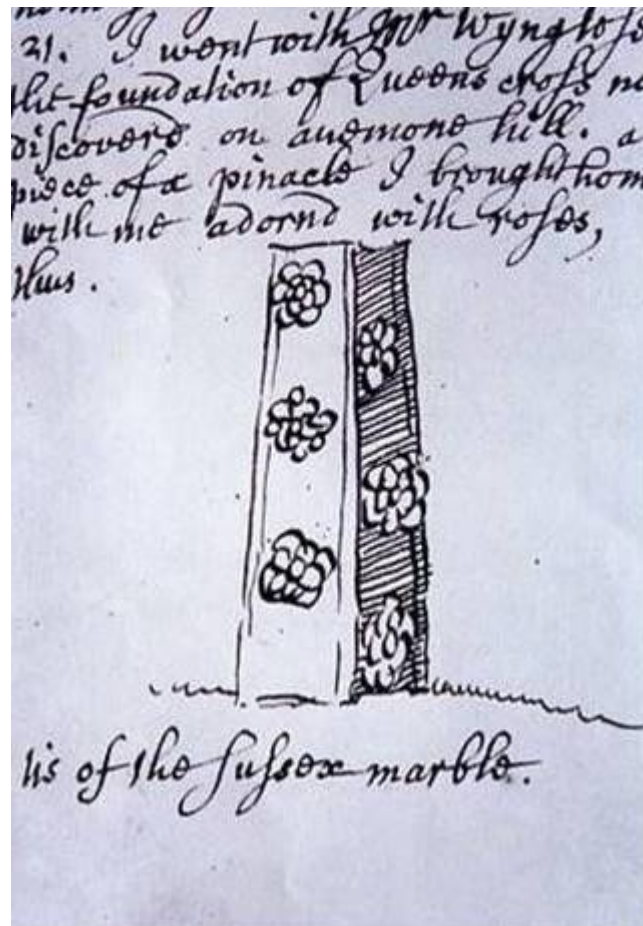 21. I went with Mr Wynglose
the foundation of Queens cross
discoverd on anemone hill. a
piece of a pinacle I brought hom
with me adornd with roses,
thus.
tis of the sussex marble.